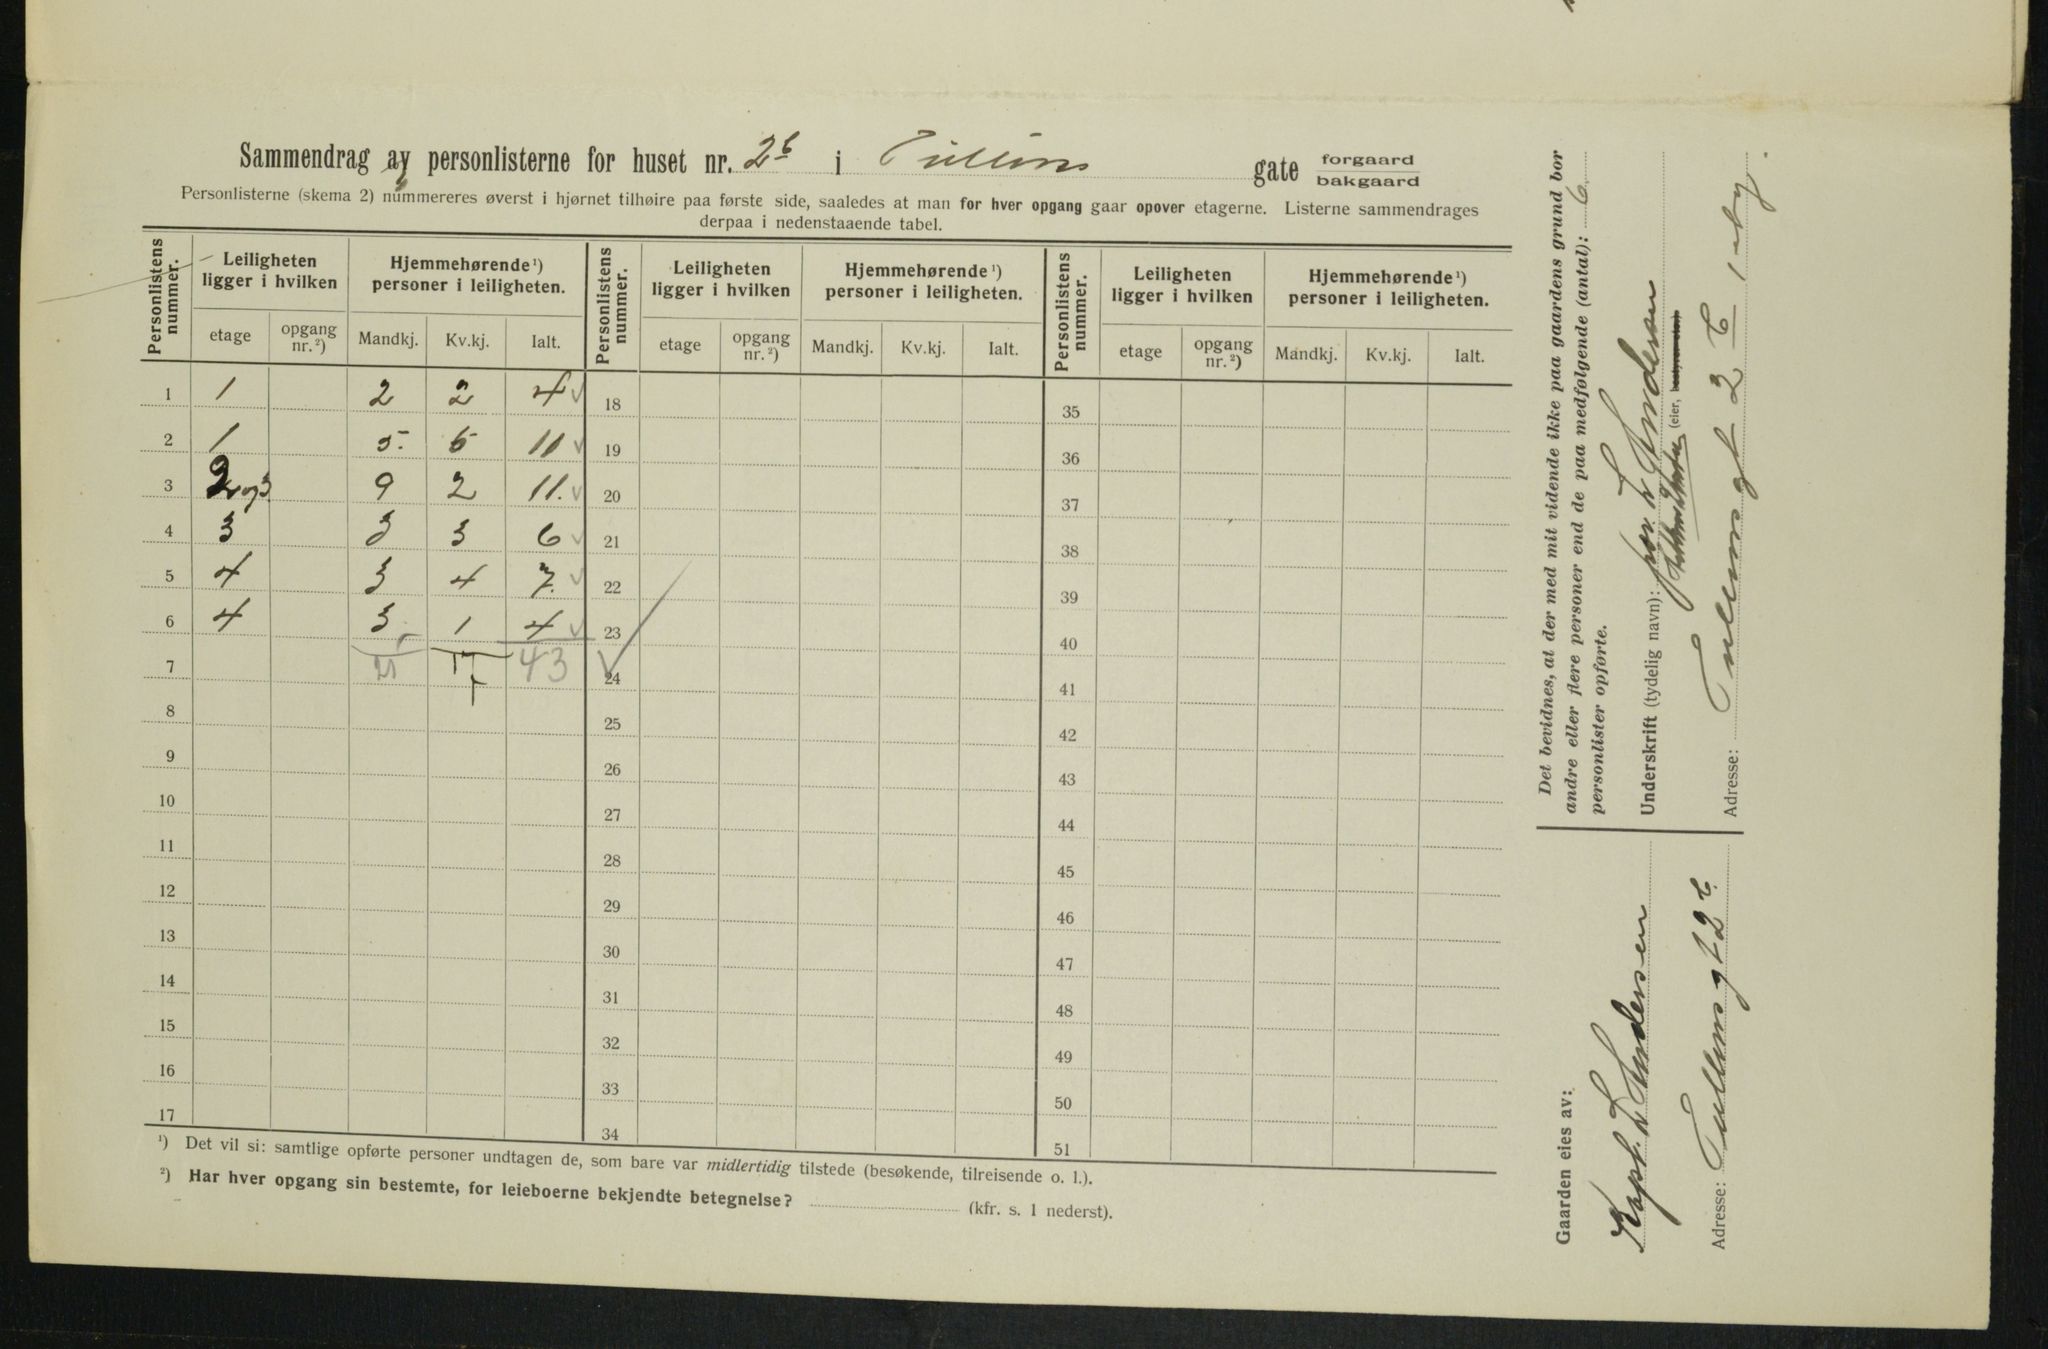 Sammendrag av personlisterne for huset nr. 2b i Tullins gate forgaard bakgaard
Personlisterne (skema 2) nummereres øverst i hjørnet tilhøire paa første side, saaledes at man for hver opgang gaar opover etagerne. Listerne sammendrages
derpaa i nedenstaaende tabel.
Personlistens nummer. Leiligheten ligger i hvilken Hjemmehørende ¹) personer i leiligheten. Personlistens nummer. Leiligheten ligger i hvilken Hjemmehørende ¹) personer i leiligheten. Personlistens nummer. Leiligheten ligger i hvilken Hjemmehørende ¹) personer i leiligheten.
etage opgang nr. ²) Mandkj. Kv.kj. Ialt. etage opgang nr. ²) Mandkj. Kv.kj. Ialt. etage opgang nr. ²) Mandkj. Kv.kj. Ialt.
1 1 2 2 4 18 35
2 1 5. 6 11 19 36
3 2 og 3 9 2 11. 20 37
4 3 3 3 6 21 38
5 4 3 4 7. 22 39
6 4 3 1 4 23 40
7 43 24 41
8 25 42
9 26 43
10 27 44
11 28 45
12 29 46
13 30 47
14 31 48
15 32 49
16 33 50
17 34 51
¹) Det vil si: samtlige opførte personer undtagen de, som bare var midlertidig tilstede (besøkende, tilreisende o. l.).
²) Har hver opgang sin bestemte, for leieboerne bekjendte betegnelse? (kfr. s. 1 nederst).
Det bevidnes, at der med mit vidende ikke paa gaardens grund bor
andre eller flere personer end de paa medfølgende (antal): 6
personlister opførte.
Underskrift (tydelig navn): L Andersen
(eier, bestyrer etc.)
Adresse: Tullinsgt 2 b
Gaarden eies av:
Kapt. L Andersen
Adresse: Tullinsgt 2 b.